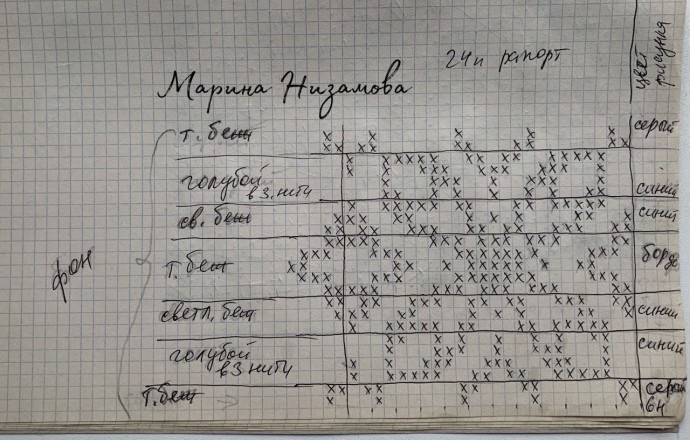 24п рапорт
цвет рисунка
Марина Низамова
т. беж
серый
голубой
в 3. нити
синий
св. беж
синий
фон
т. беж
бордо
светл. беж
синий
голубой
в 3. нити
синий
т. беж
серый
6н